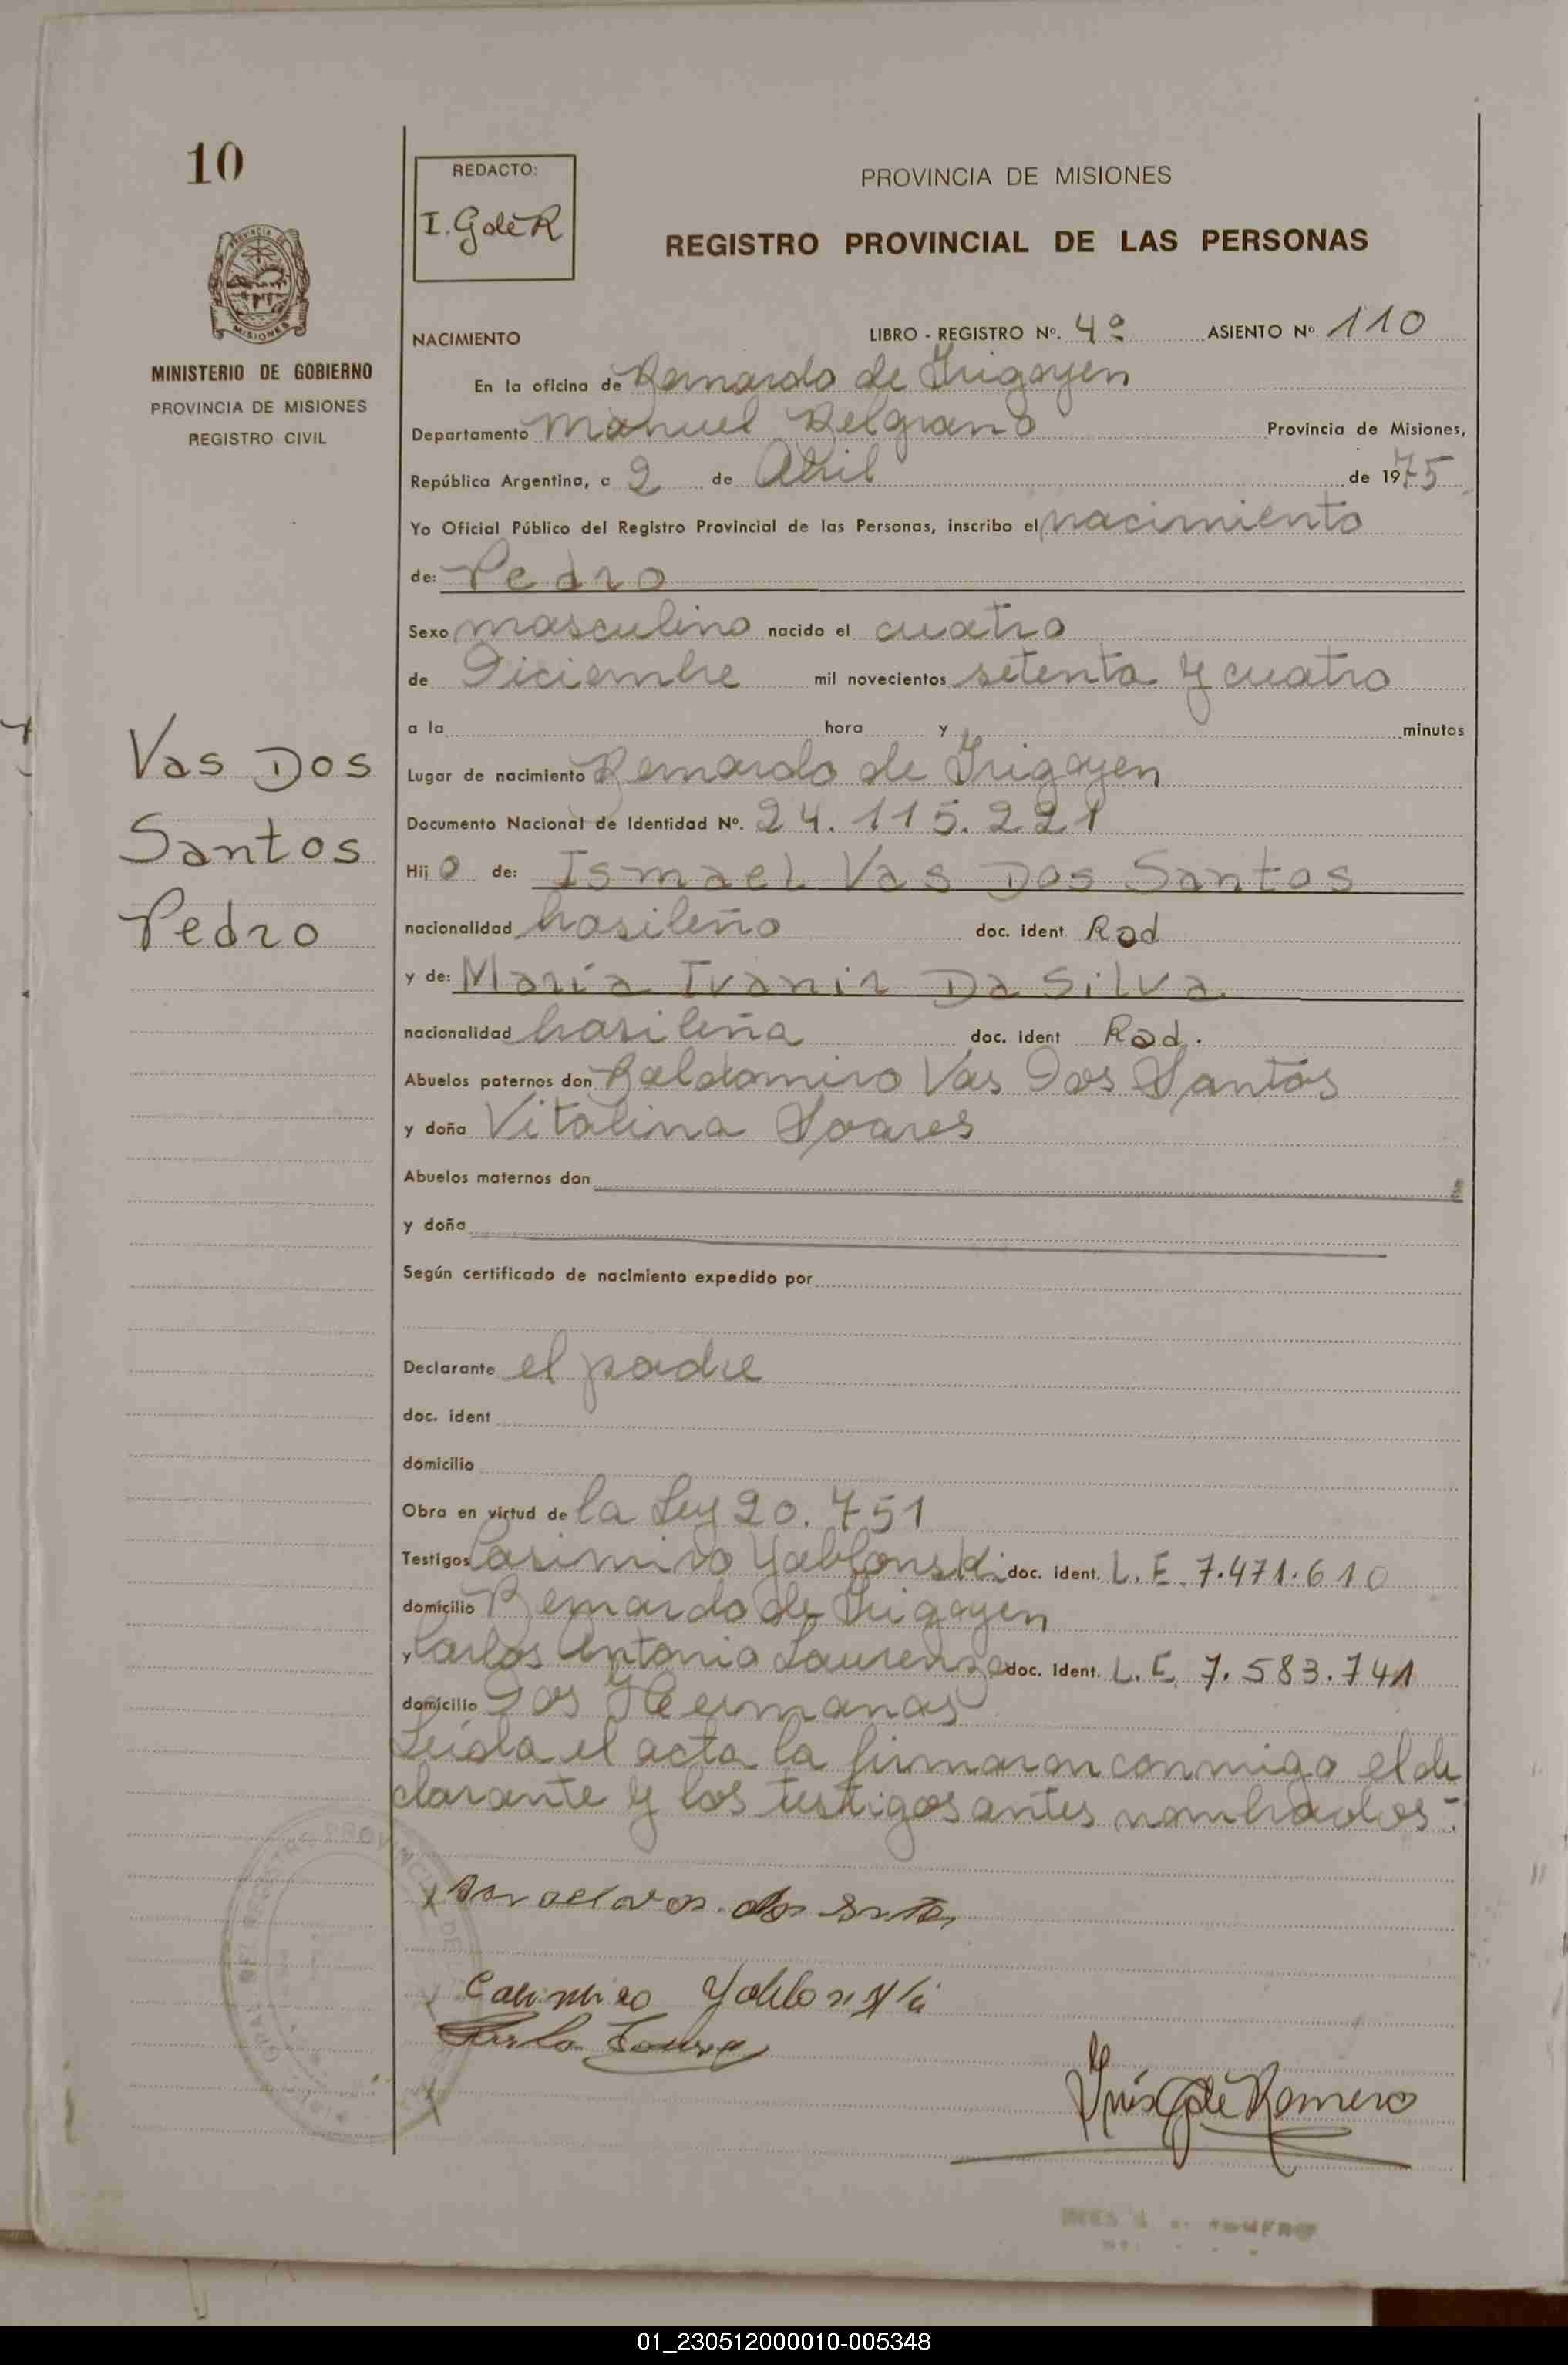 10
REDACTO:
I. G de R
PROVINCIA DE MISIONES
REGISTRO PROVINCIAL DE LAS PERSONAS
MISIONES
MINISTERIO DE GOBIERNO
PROVINCIA DE MISIONES
REGISTRO CIVIL
NACIMIENTO LIBRO - REGISTRO Nº. 4º ASIENTO Nº 110
En la oficina de Bernardo de Irigoyen
Departamento Manuel Belgrano Provincia de Misiones,
República Argentina, a 2 de Abril de 1975
Yo Oficial Público del Registro Provincial de las Personas, inscribo el nacimiento
de: Pedro
Sexo masculino nacido el cuatro
de Diciembre mil novecientos setenta y cuatro
a la hora y minutos
Vas Dos
Santos
Pedro
Lugar de nacimiento Bernardo de Irigoyen
Documento Nacional de Identidad Nº. 24.115.221
Hijo de: Ismael Vas Dos Santos
nacionalidad brasileño doc. ident Rad
y de: María Ivanir Da Silva
nacionalidad brasileña doc. ident Rad.
Abuelos paternos don Baldomiro Vas Dos Santos
y doña Vitalina Soares
Abuelos maternos don
y doña
Según certificado de nacimiento expedido por
Declarante el padre
doc. ident
domicilio
Obra en virtud de la Ley 20.751
Testigos Casimiro Yablonski doc. ident. L.E. 7.471.610
domicilio Bernardo de Irigoyen
y Carlos Antonio Laurenzo doc. Ident. L.E. 7.583.741
domicilio Dos Hermanas
Leída el acta la firmaron conmigo el de
clarante y los testigos antes nombrados-:
dos
Casimiro Yablonski
Inés G de Romero
01_230512000010-005348